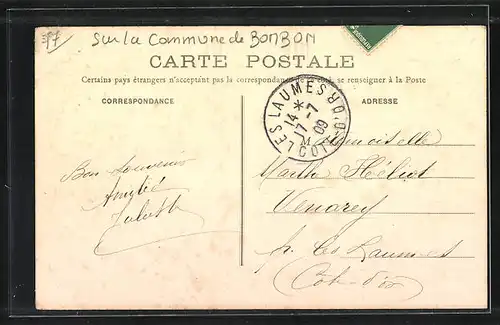 Sur la Commune de BONBON
CARTE POSTALE
Certains pays étrangers n'acceptant pas la correspondance de ce côté, se renseigner à la Poste
CORRESPONDANCE
ADRESSE
LES LAUMES COTE D'OR
14 *
17-7
09
Bon souvenir
Amitié
Juliette
Héliot
Venarey
p. les Laumes
Côte-d'or